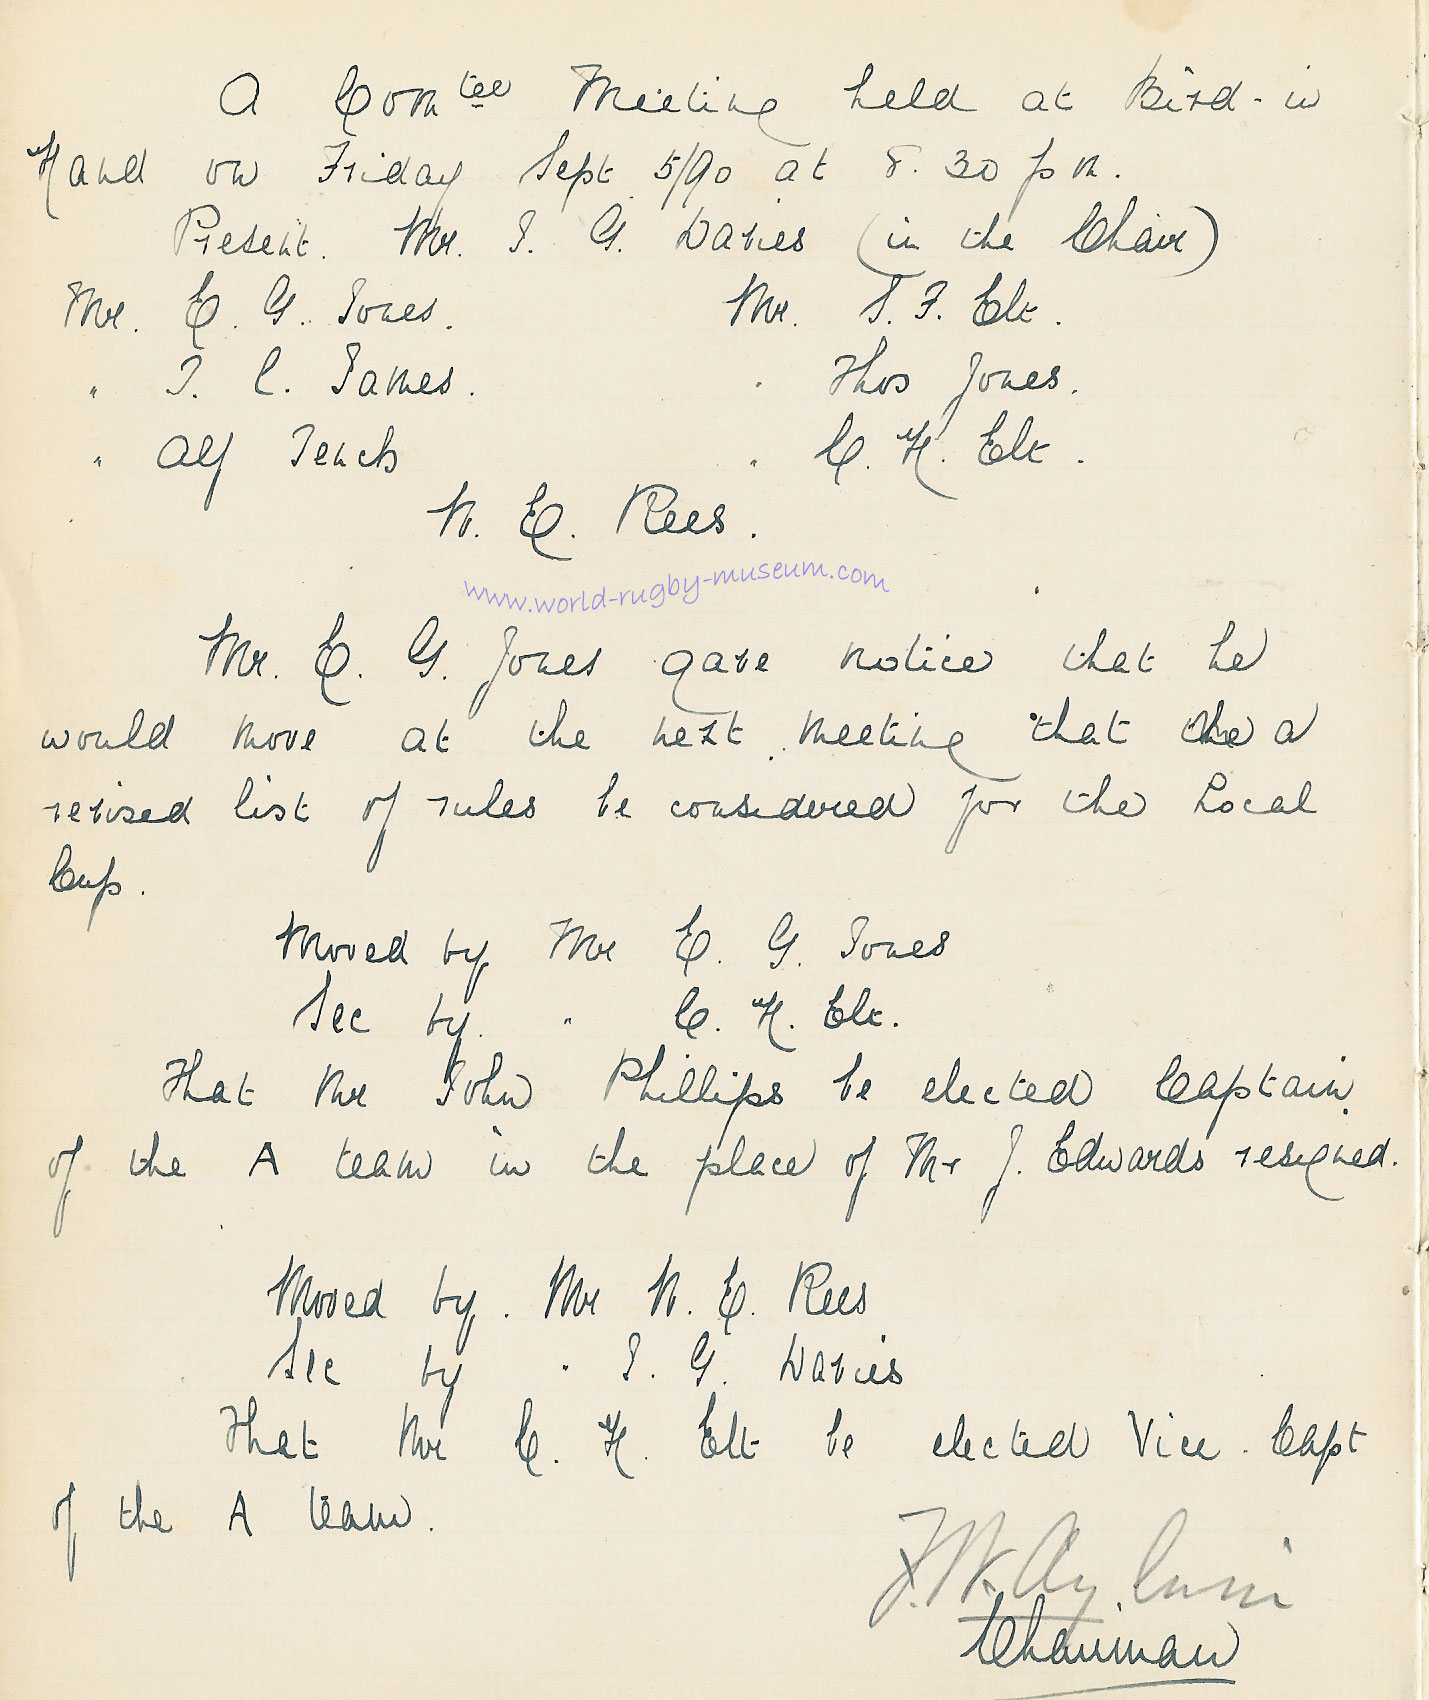 A Comtee Meeting held at Bird-in
Hand on Friday Sept 5/90 at 8.30 pm.
Present. Mr. T. G. Davies (in the Chair)
Mr. E. G. Jones. Mr. S. F. Elt.
" T. C. James. " Thos Jones.
" Alf Tench " C. H. Elt.
W. E. Rees.
www.world-rugby-museum.com
Mr. E. G. Jones gave notice that he
would move at the next meeting that the a
revised list of rules be considered for the Local
Cup.
Moved by Mr E. G. Jones
Sec by " C. H. Elt.
That Mr John Phillips be elected Captain
of the A team in the place of Mr J. Edwards resigned.
Moved by. Mr W. E. Rees
Sec by " T. G. Davies
That Mr C. H. Elt be elected Vice. Capt
of the A team.
Chairman